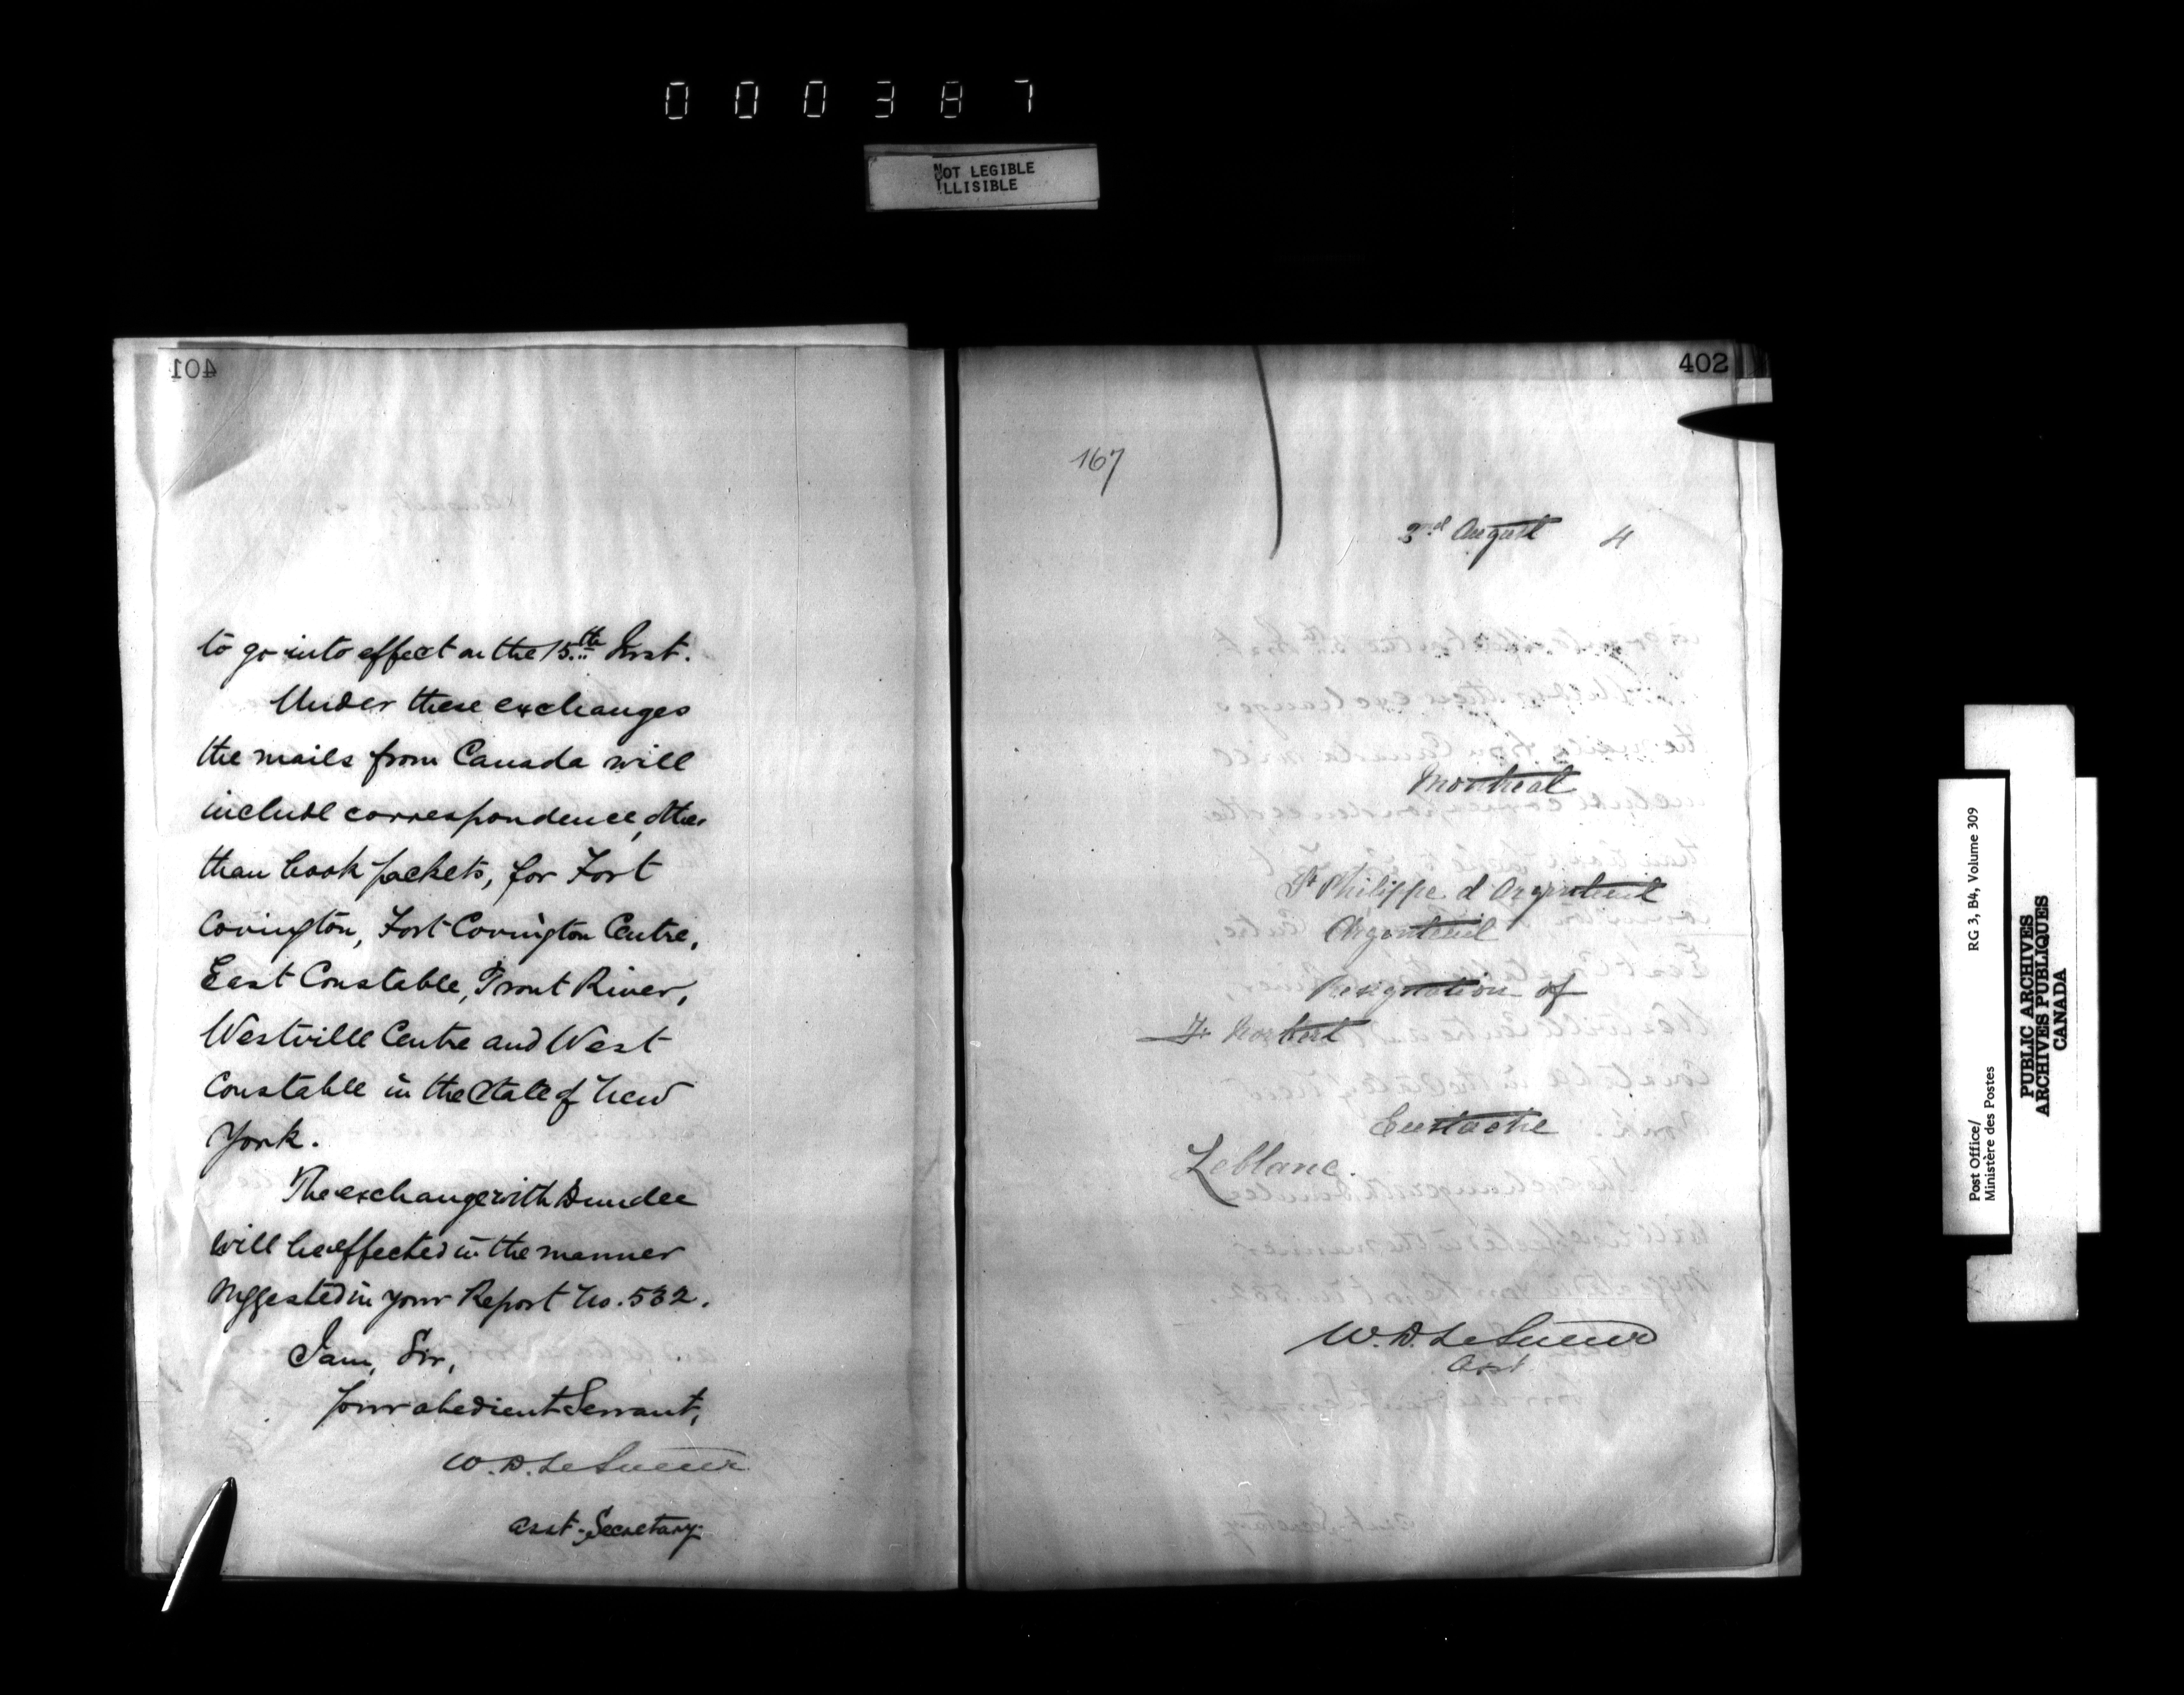 000387
NOT LEGIBLE
ILLISIBLE
401
to go into effect on the 15th Inst.
Under these exchanges
the mails from Canada will
include correspondence, other
than book packets, for Fort
Covington, Fort Covington Centre,
East Constable, Trout River,
Westville Centre and West
Constable in the State of New
York.
The exchange with Dundee
will be effected in the manner
suggested in your Report No. 532.
I am, Sir,
Your obedient Servant,
W.D. LeSueur
Asst. Secretary
402
167
August 4
Montreal
St Philippe d Argenteuil
Argenteuil
Resignation of
Norbert
Eustache
Leblanc.
W.D. LeSueur
Asst.
Post Office/ RG 3, B4, Volume 309
Ministère des Postes
PUBLIC ARCHIVES
ARCHIVES PUBLIQUES
CANADA